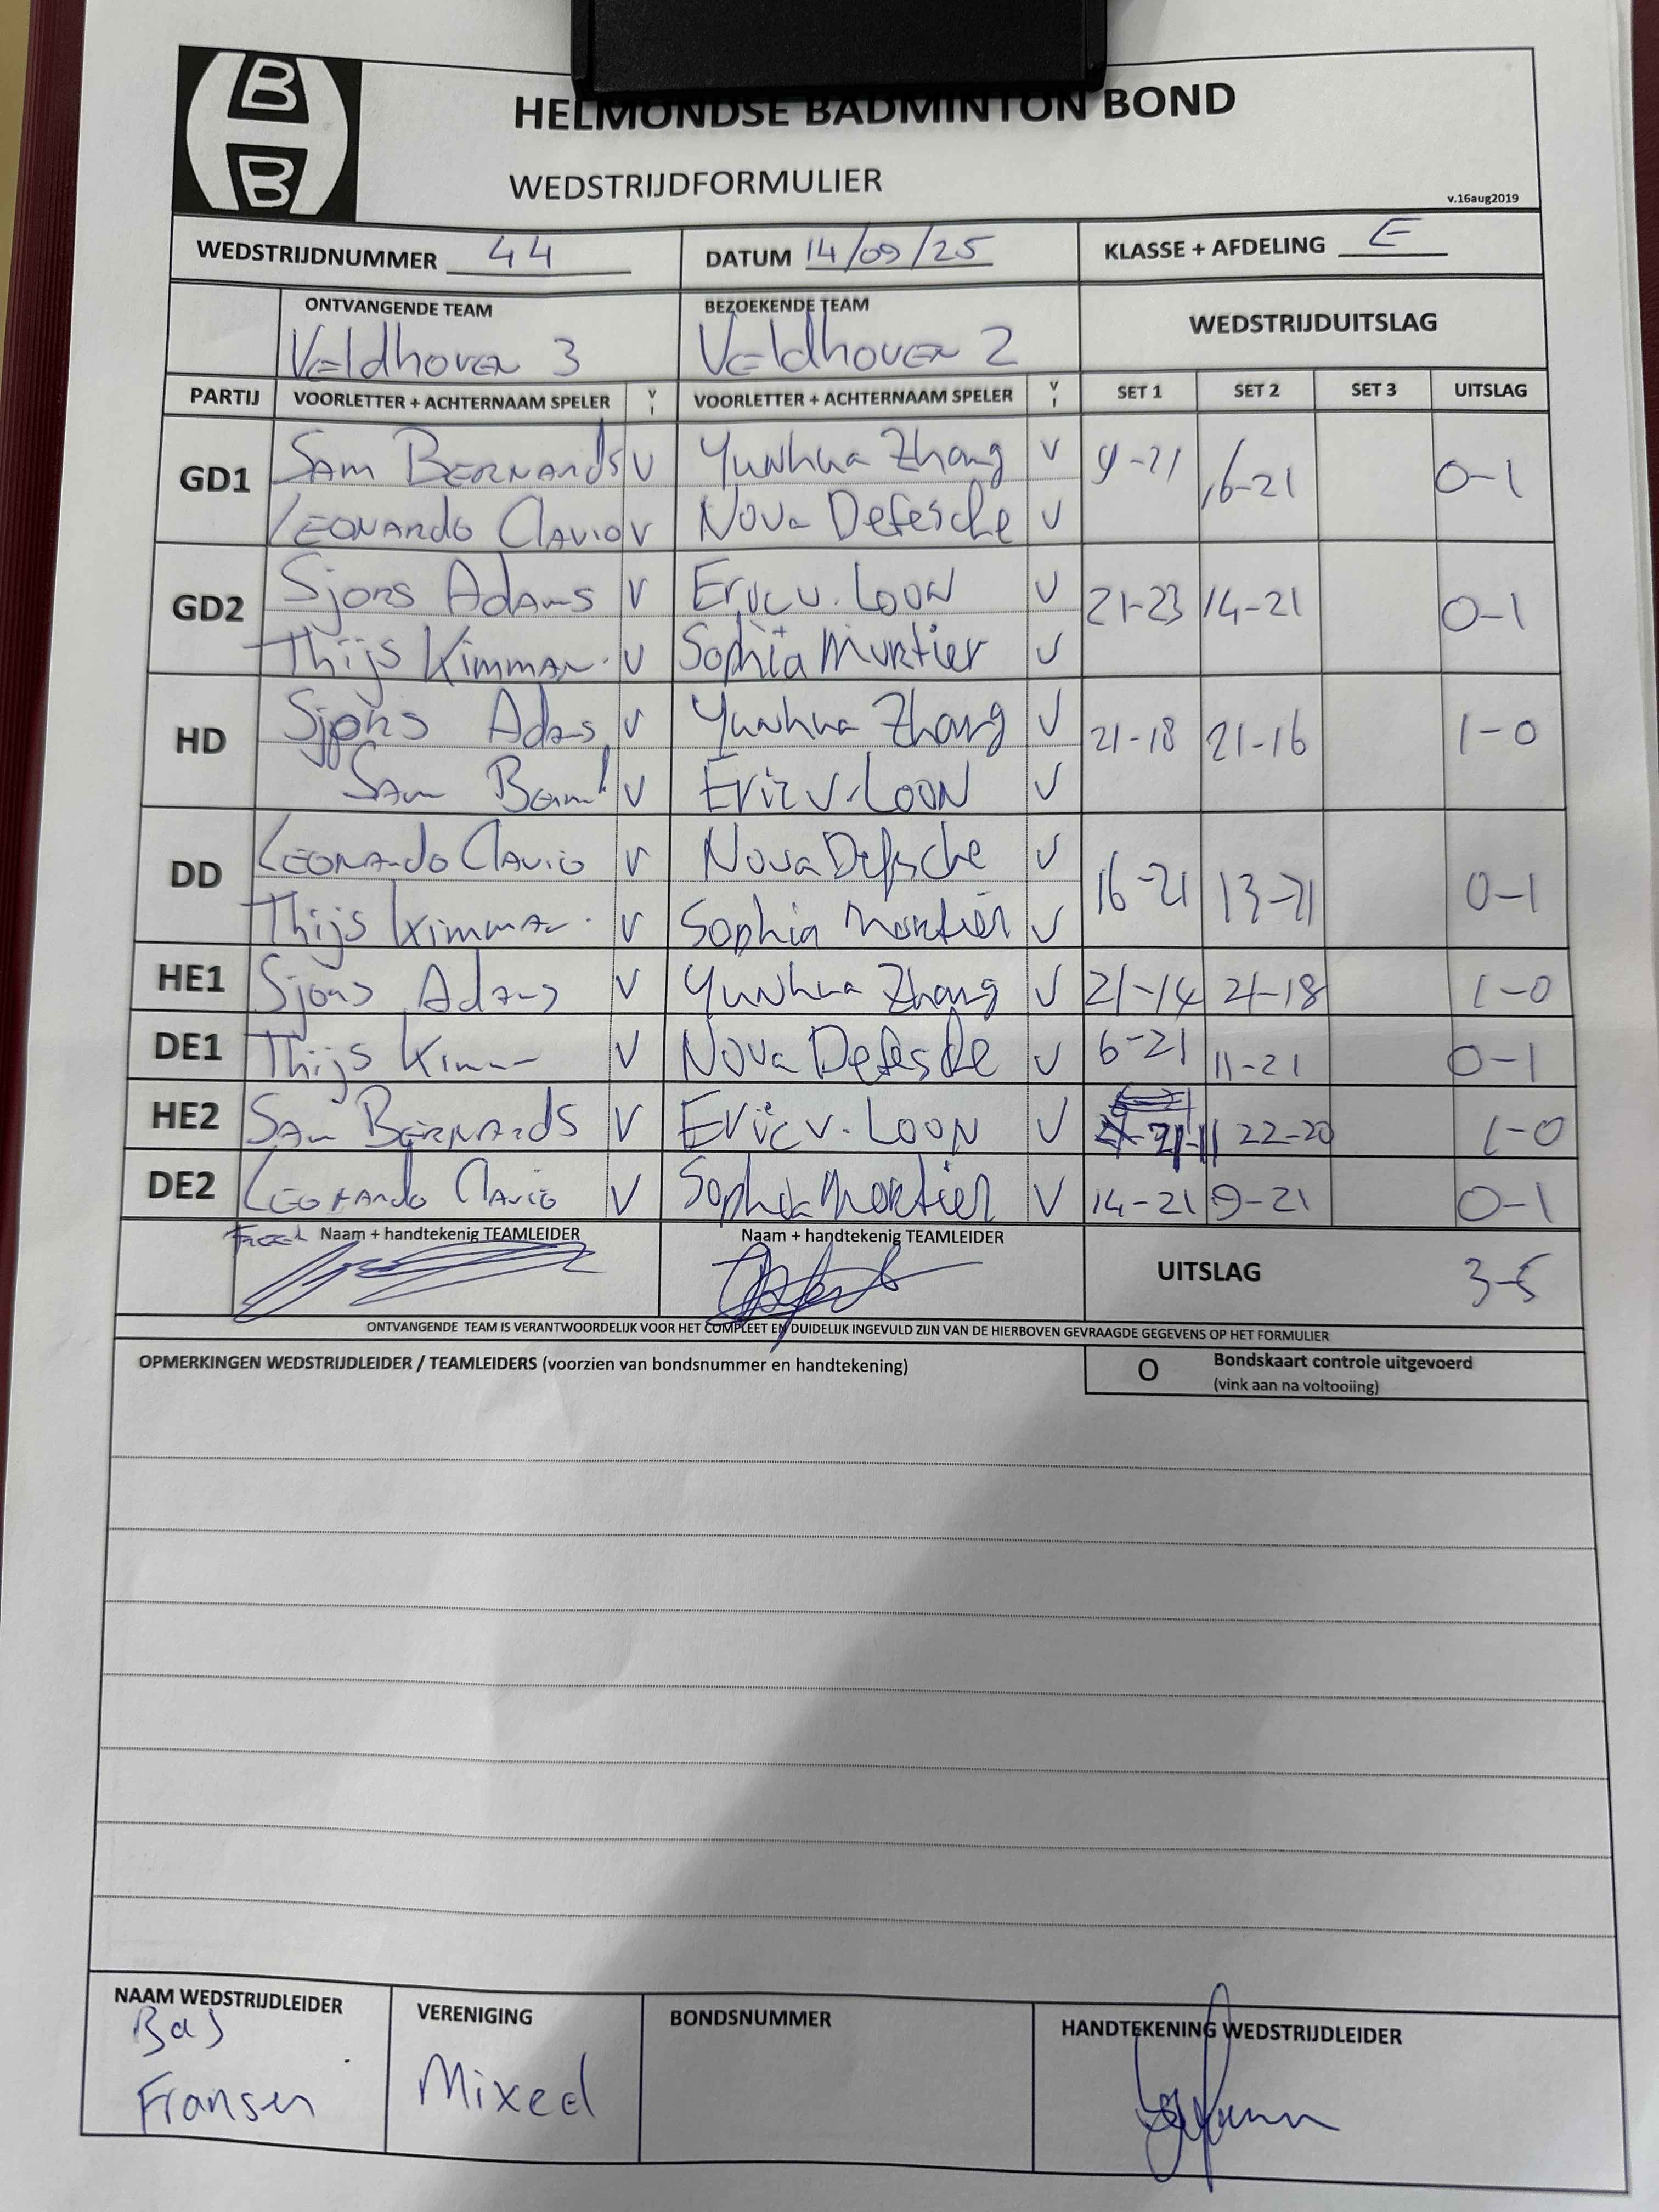 B
B
HELMONDSE BADMINTON BOND
WEDSTRIJDFORMULIER
v.16aug2019
WEDSTRIJDNUMMER 44 DATUM 14/09/25 KLASSE + AFDELING E
ONTVANGENDE TEAM BEZOEKENDE TEAM WEDSTRIJDUITSLAG
Veldhoven 3 Veldhoven 2
PARTIJ VOORLETTER + ACHTERNAAM SPELER V I VOORLETTER + ACHTERNAAM SPELER V I SET 1 SET 2 SET 3 UITSLAG
GD1 Sam Bernards V Yunhua Zhang V 9-21 16-21 0-1
Leonardo Clavio V Nova Defesche V
GD2 Sjors Adams V Eric v. Loon V 21-23 14-21 0-1
Thijs Kimman. V Sophia Mortier V
HD Sjors Adams V Yunhua Zhang V 21-18 21-16 1-0
Sam V Eric v. Loon V
DD Leonardo Clavio V Nova Defesche V 16-21 13-21 0-1
Thijs Kimman. V Sophia Mortier V
HE1 Sjors Adams V Yunhua Zhang V 21-14 21-18 1-0
DE1 Thijs V Nova Defesche V 6-21 11-21 0-1
HE2 Sam Bernards V Eric v. Loon V 21-11 22-20 1-0
DE2 Leonardo Clavio V Sophia Mortier V 14-21 9-21 0-1
Naam + handtekenig TEAMLEIDER Naam + handtekenig TEAMLEIDER UITSLAG 3-5
ONTVANGENDE TEAM IS VERANTWOORDELIJK VOOR HET COMPLEET EN DUIDELIJK INGEVULD ZIJN VAN DE HIERBOVEN GEVRAAGDE GEGEVENS OP HET FORMULIER
OPMERKINGEN WEDSTRIJDLEIDER / TEAMLEIDERS (voorzien van bondsnummer en handtekening) O Bondskaart controle uitgevoerd
(vink aan na voltooiing)
NAAM WEDSTRIJDLEIDER VERENIGING BONDSNUMMER HANDTEKENING WEDSTRIJDLEIDER
Bas
Fransen Mixed